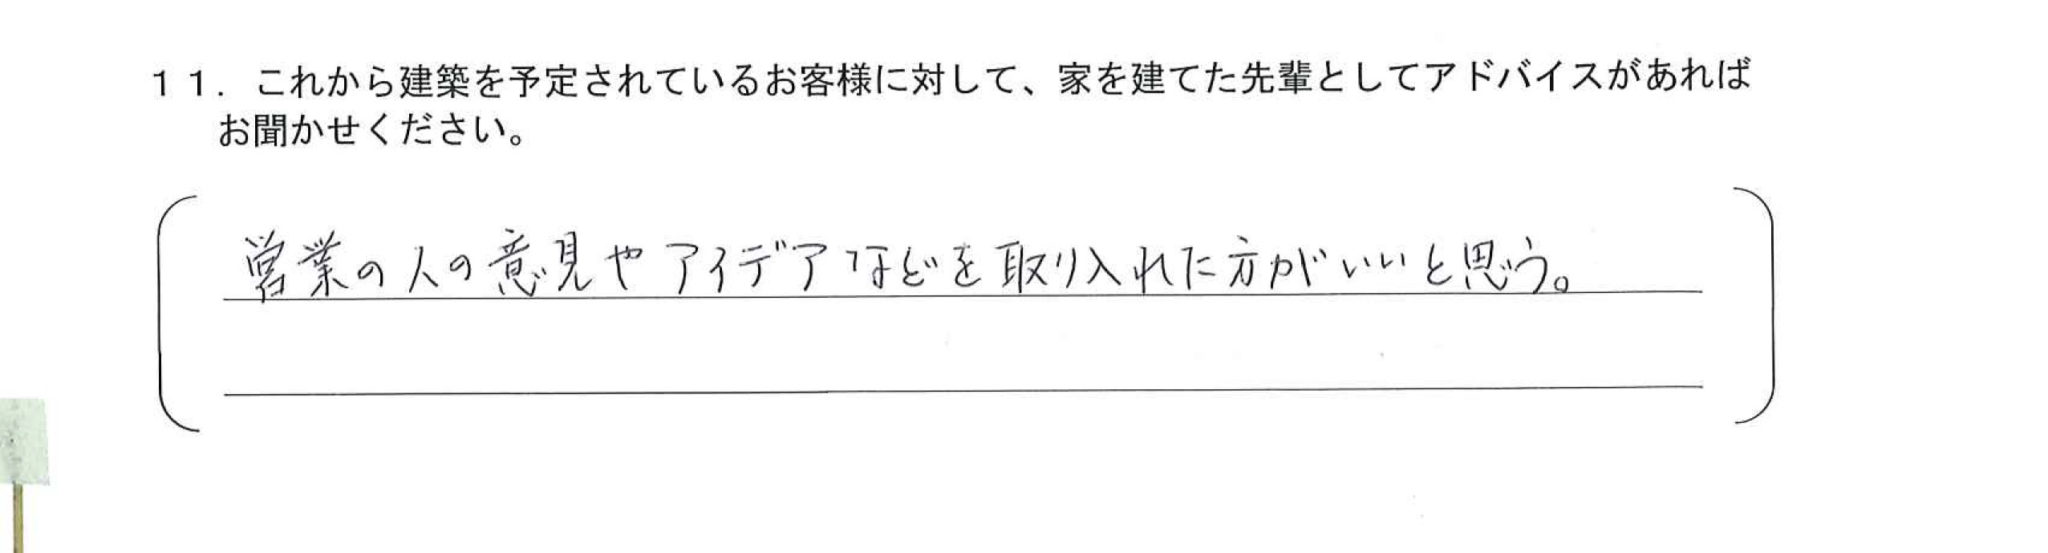 １１．これから建築を予定されているお客様に対して、家を建てた先輩としてアドバイスがあれば
お聞かせください。
営業の人の意見やアイデアなどを取り入れた方がいいと思う。